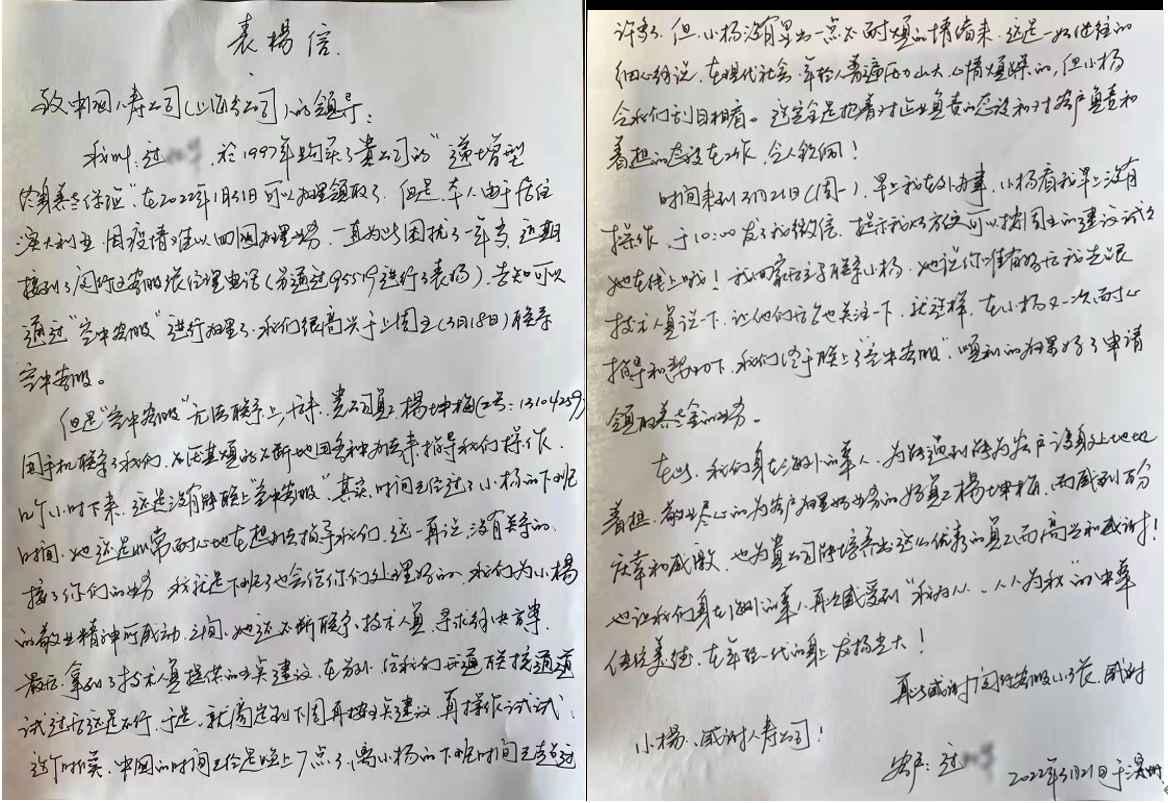 表揚信.
致中国人寿公司(上海分公司)的领导:
我叫:过 , 於1997年购买了贵公司的"递增型
终身养老保险"在2022年1月31日可以办理领取了. 但是, 本人由于居住
澳大利亚, 因疫情难以回国办理业务, 一直为此困扰了一年多, 近期
接到了闵行区客服张经理电话(另通过95519进行了表扬), 告知可以
通过"空中客服"进行办理了. 我们很高兴于上周五(3月18日)联系
空中客服。
但是"空中客服"无法联系上, 贵公司员工楊坤梅(工号:13104259)
用手机联系了我们, 不厌其烦的不断地用各种办法来指导我们操作.
几个小时下来, 还是没有能联上"空中客服". 其实, 时间已经过了小杨的下班
时间, 她还是非常耐心地在想办法指导我们, 还一再说, 没有关系的,
接了你们的业务 我就是下班了也会给你们处理好的. 我们为小楊
的敬业精神所感动. 之间, 她还不断联系技术人员, 寻求解决方案.
最后, 拿到了技术人员提供的五点建议, 在另外 给我们开通联接通道
试过后还是不行, 于是, 就商定到下周再按五点建议 再操作试试;
这个时候, 中国的时间已经是晚上7点了, 离小杨的下班时间已超过
许多了. 但小杨没有异为一点不耐烦的情绪来. 还是一如既往的
细心解说, 在现代社会, 年轻人普遍压力山大, 心情烦躁的, 但小杨
令我们刮目相看。这完全是抱着对企业负责的态度和对客户负责和
着想的态度在工作, 令人钦佩!
时间来到3月21日(周一), 早上我在外办事, 小杨看我早上没有
操作, 于10:00发了我微信, 提示我以方便可以按周五的建议试试
她在线上哦! 我回家后主动联系小杨, 她说你准备好后我先跟
技术人员说一下, 让他们后台也关注一下, 就这样, 在小杨又一次耐心
指导和帮助下, 我们终于联上了"空中客服", 顺利的办理好了申请
领取养老金的业务。
在此, 我们身在海外的华人, 为能遇到能为客户设身处地地
着想, 敬业尽心的为客户办理好业务的好员工楊坤梅, 而感到万分
庆幸和感激, 也为贵公司能培养出这么优秀的员工而高兴和感谢!
也让我们身在海外的华人, 再次感受到"我为人人, 人人为我"的中华
传统美德, 在年轻一代的身上发扬光大!
再次感谢闵行客服小张, 感谢
小楊, 感谢人寿公司!
客户: 过
2022年3月21日于澳洲